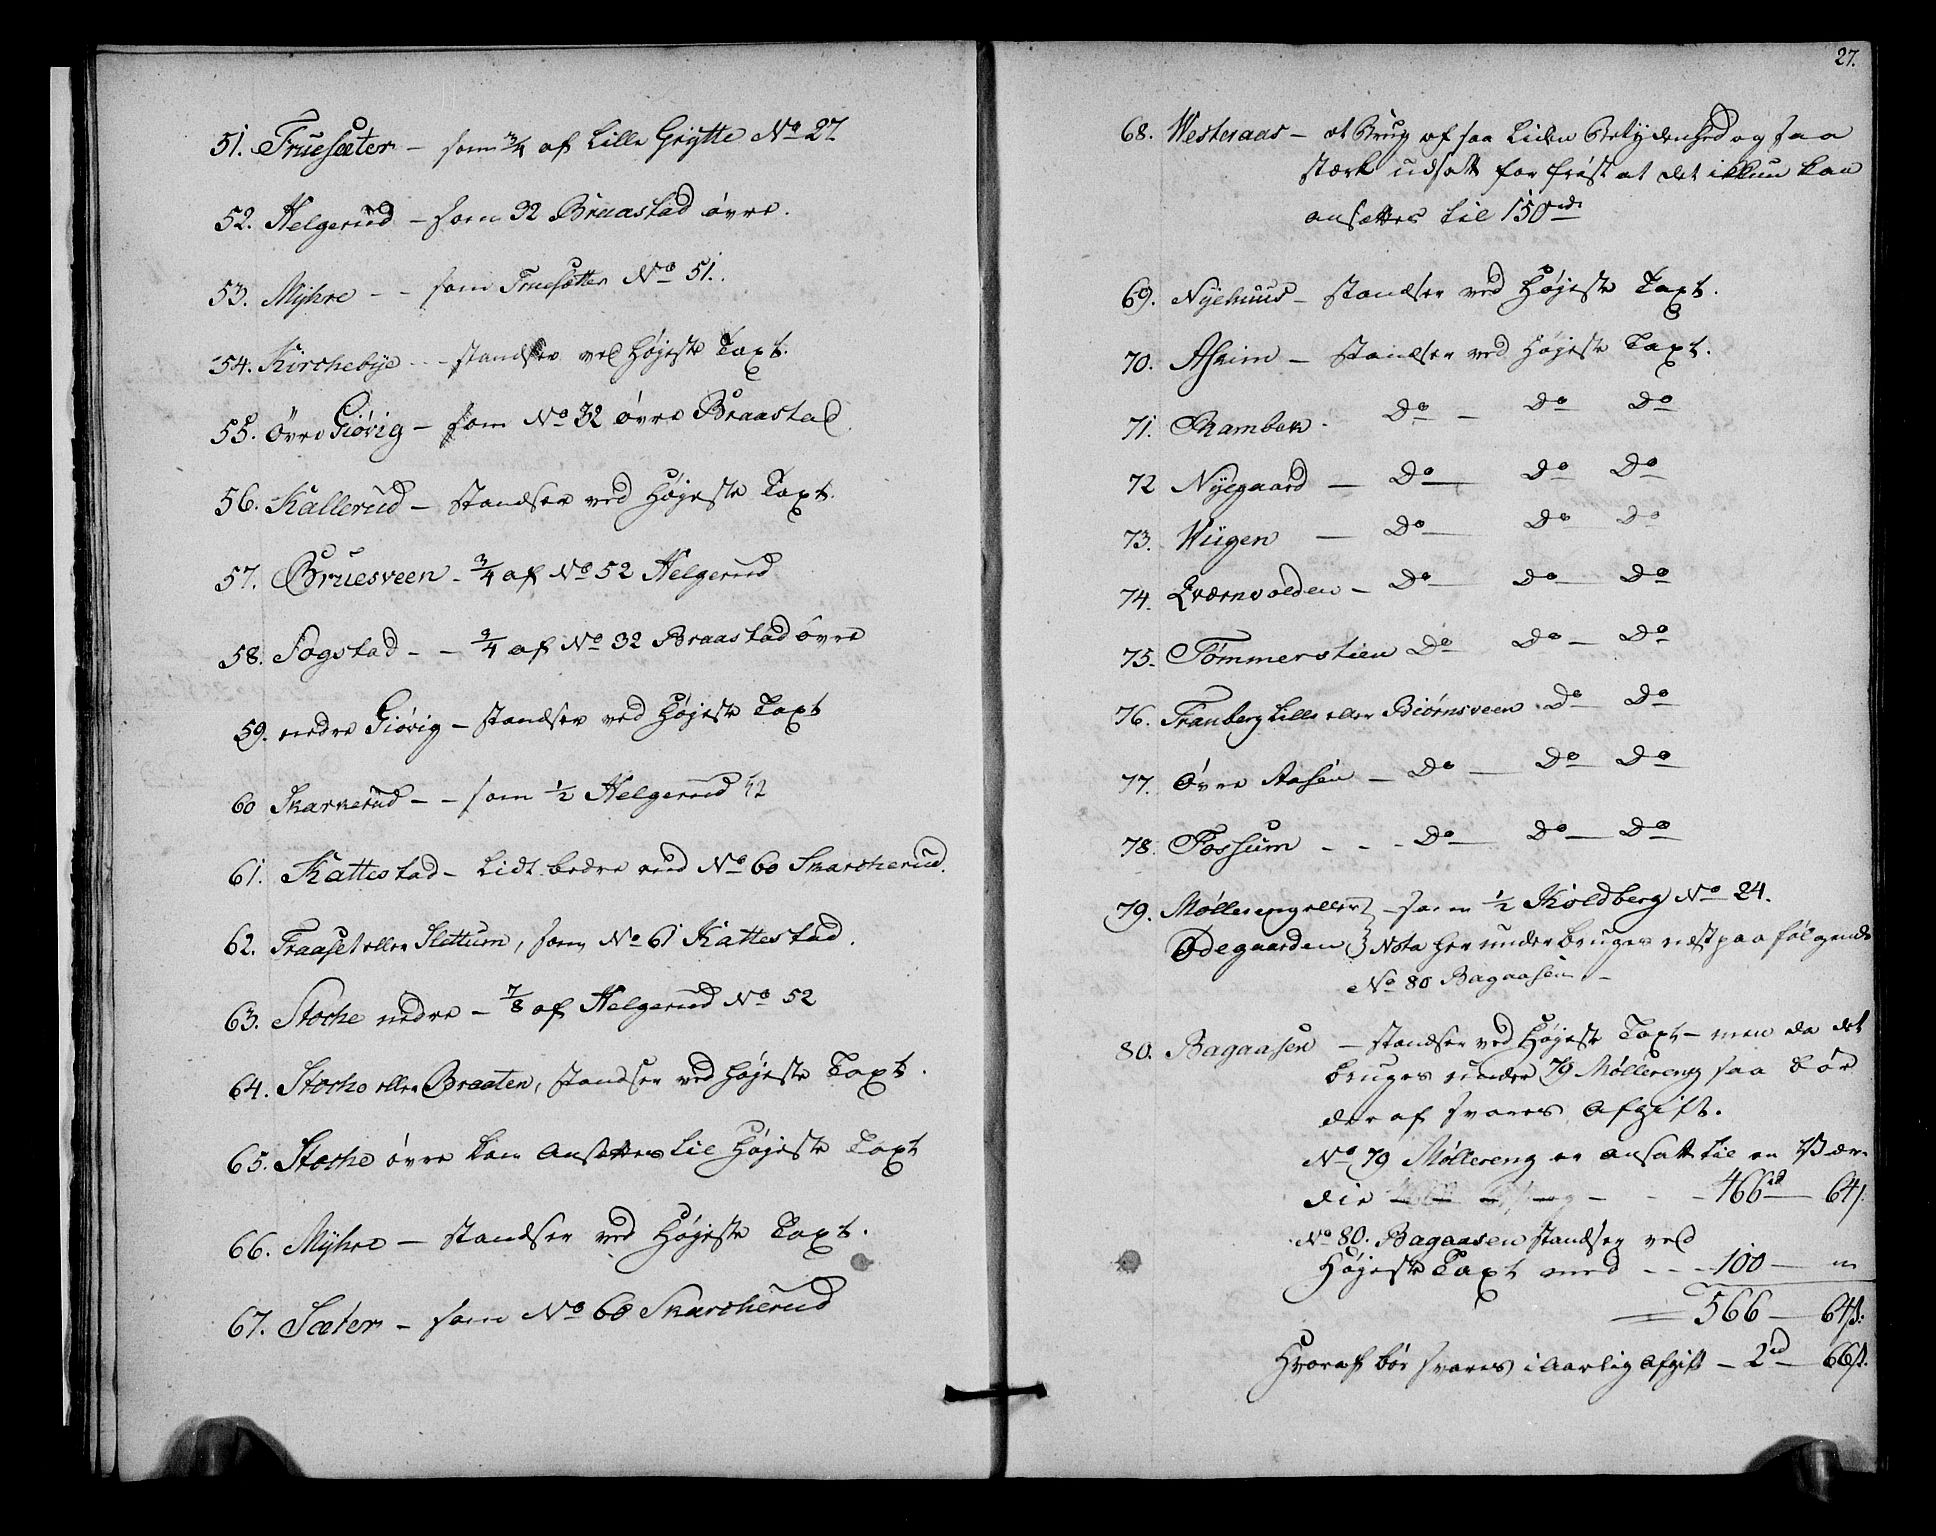 51. Truesæter - som 3/4 af Lille Grytte No 27
52. Helgerud - som 32 Braastad øvre.
53. Myhre - - som Truesætter No 51.
54. Kirchebye - - standser ved Højeste Taxt.
55. Øvre Giøvig - som No 32 øvre Braastad.
56. Kallerud - standser ved Højeste Taxt.
57. Bruesveen - 3/4 af No 52 Helgerud
58. Sogstad - - 3/4 af No 32 Braastad øvre
59. nedre Giøvig - standser ved Højeste Taxt
60 Skarkerud - - som 1/2 Helgerud 52
61. Kattestad - Lidt bedre end No 60 Skarcherud.
62. Fraaset eller Slettum, som No 61 Kattestad.
63. Stoche nedre - 7/8 af Helgerud No 52
64. Stoche eller Braaten, standser ved højeste Taxt.
65. Stoche øvre kan Ansættes til Højeste Taxt
66. Myhre - standser ved Højeste Taxt.
67. Sæter - som No 60 Skarcherud
27.
68. Westeraas - et Brug af saa Liden Betydenhed og saa
stærk udsatt for frøst at det ikkun kan
ansættes til 150 rd
69. Nyehuus - standser ved Højeste Taxt.
70. Askim - standser ved Højeste Taxt.
71. Rambek - Do - Do Do
72 Nyegaard - Do - Do Do
73. Wiigen - Do - Do Do
74. Qværnvolden - Do - Do - Do
75. Tømmerstien Do Do - Do
76. Tranberg Lille eller Biørnsveen - Do - Do
77. Øvre Aasen - Do - Do - Do
78. Fossum - - - Do - Do - Do
79. Møllereng eller } - som 1/2 Koldberg No 24.
Ødegaarden } Nota herunder bruges næstpaafølgende
No 80 Bagaasen -
80. Bagaasen - standser ved Højeste Taxt - men da det
bruges under 79 Møllereng saa bør
deraf svares Afgift.
No 79 Møllereng er ansatt til en Vær-
die - - - 466 rd - 64 s.
No 80. Bagaasen standser ved
Højeste Taxt med - - - 100 - "
= 566 - 64 s.
Hvoraf bør svares i Aarlig Afgift - 2 rd - 66 s.